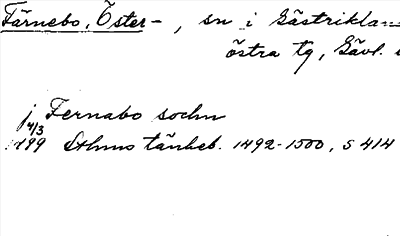 Färnebo, Öster-, sn i Gästriklan
östra tg, Gävl.
j Fernabo sochn
4/3
1499 Sthms tänkeb. 1492-1500, s 414